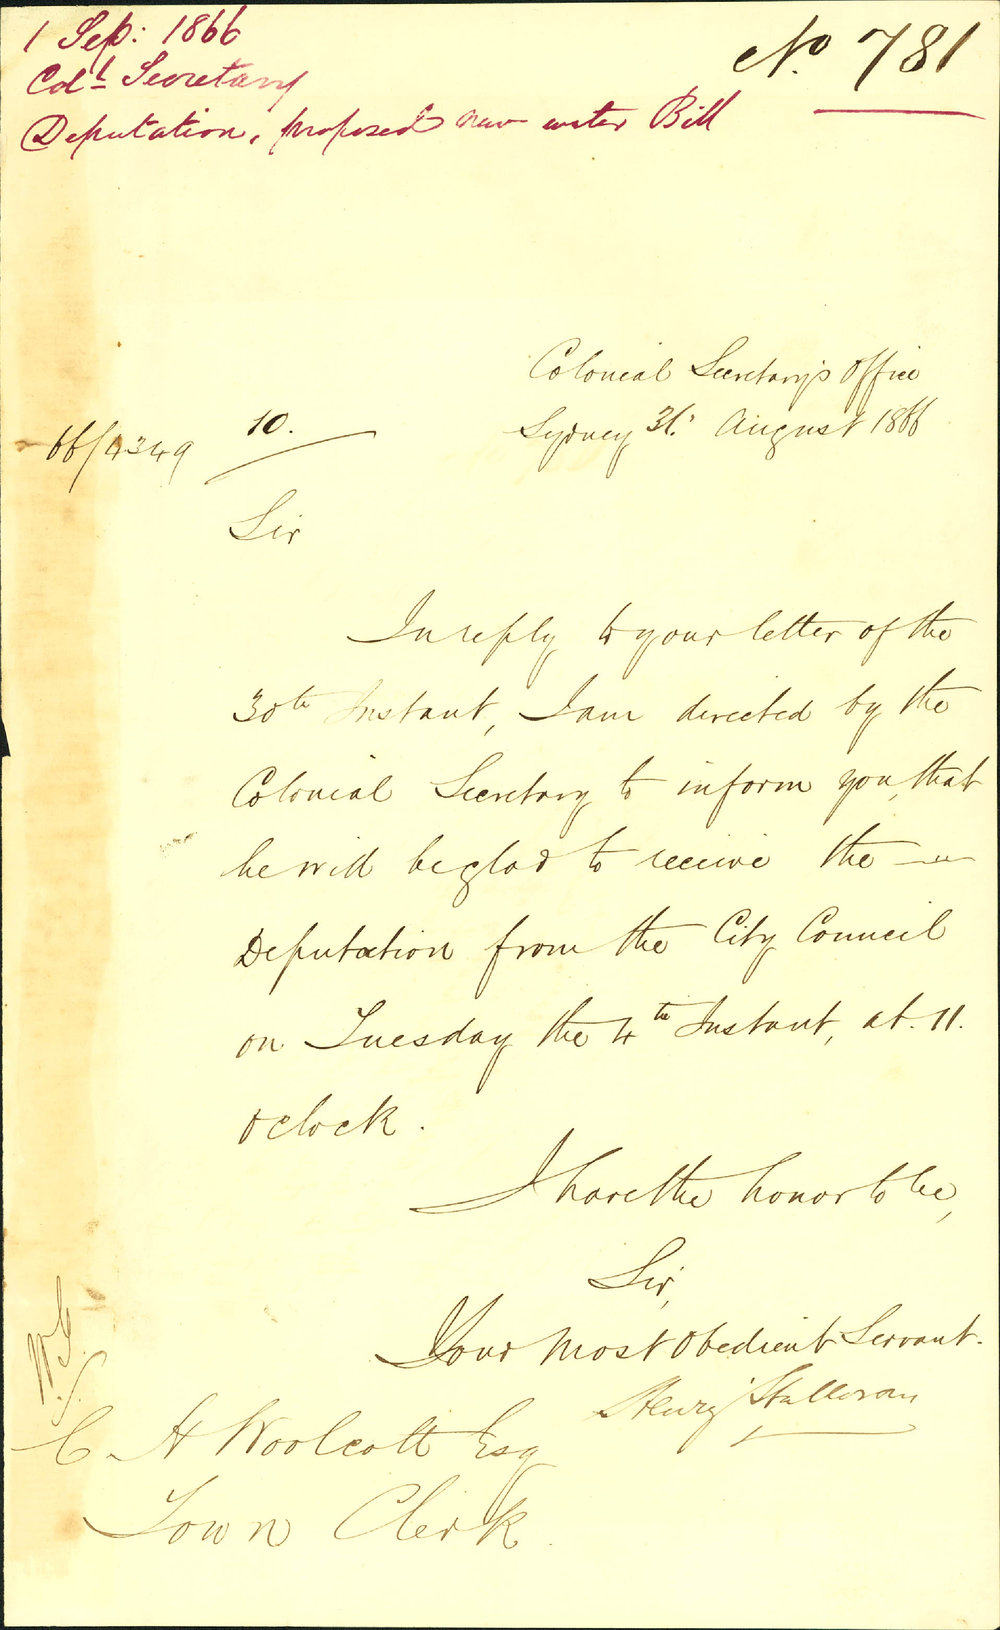 1 Sep: 1866
No. 781
Coll. Secretary
Deputation, proposed new water Bill
Colonial Secretary's Office
Sydney 31. August 1866
66/4349
10.
Sir
In reply to your letter of the
30th Instant, I am directed by the
Colonial Secretary to inform you, that
he will be glad to receive the
Deputation from the City Council
on Tuesday the 4th Instant, at 11.
oclock.
I have the honor to be,
Sir,
Your most obedient Servant.
Henry Halloran
C. H Woolcott Esq
Town Clerk